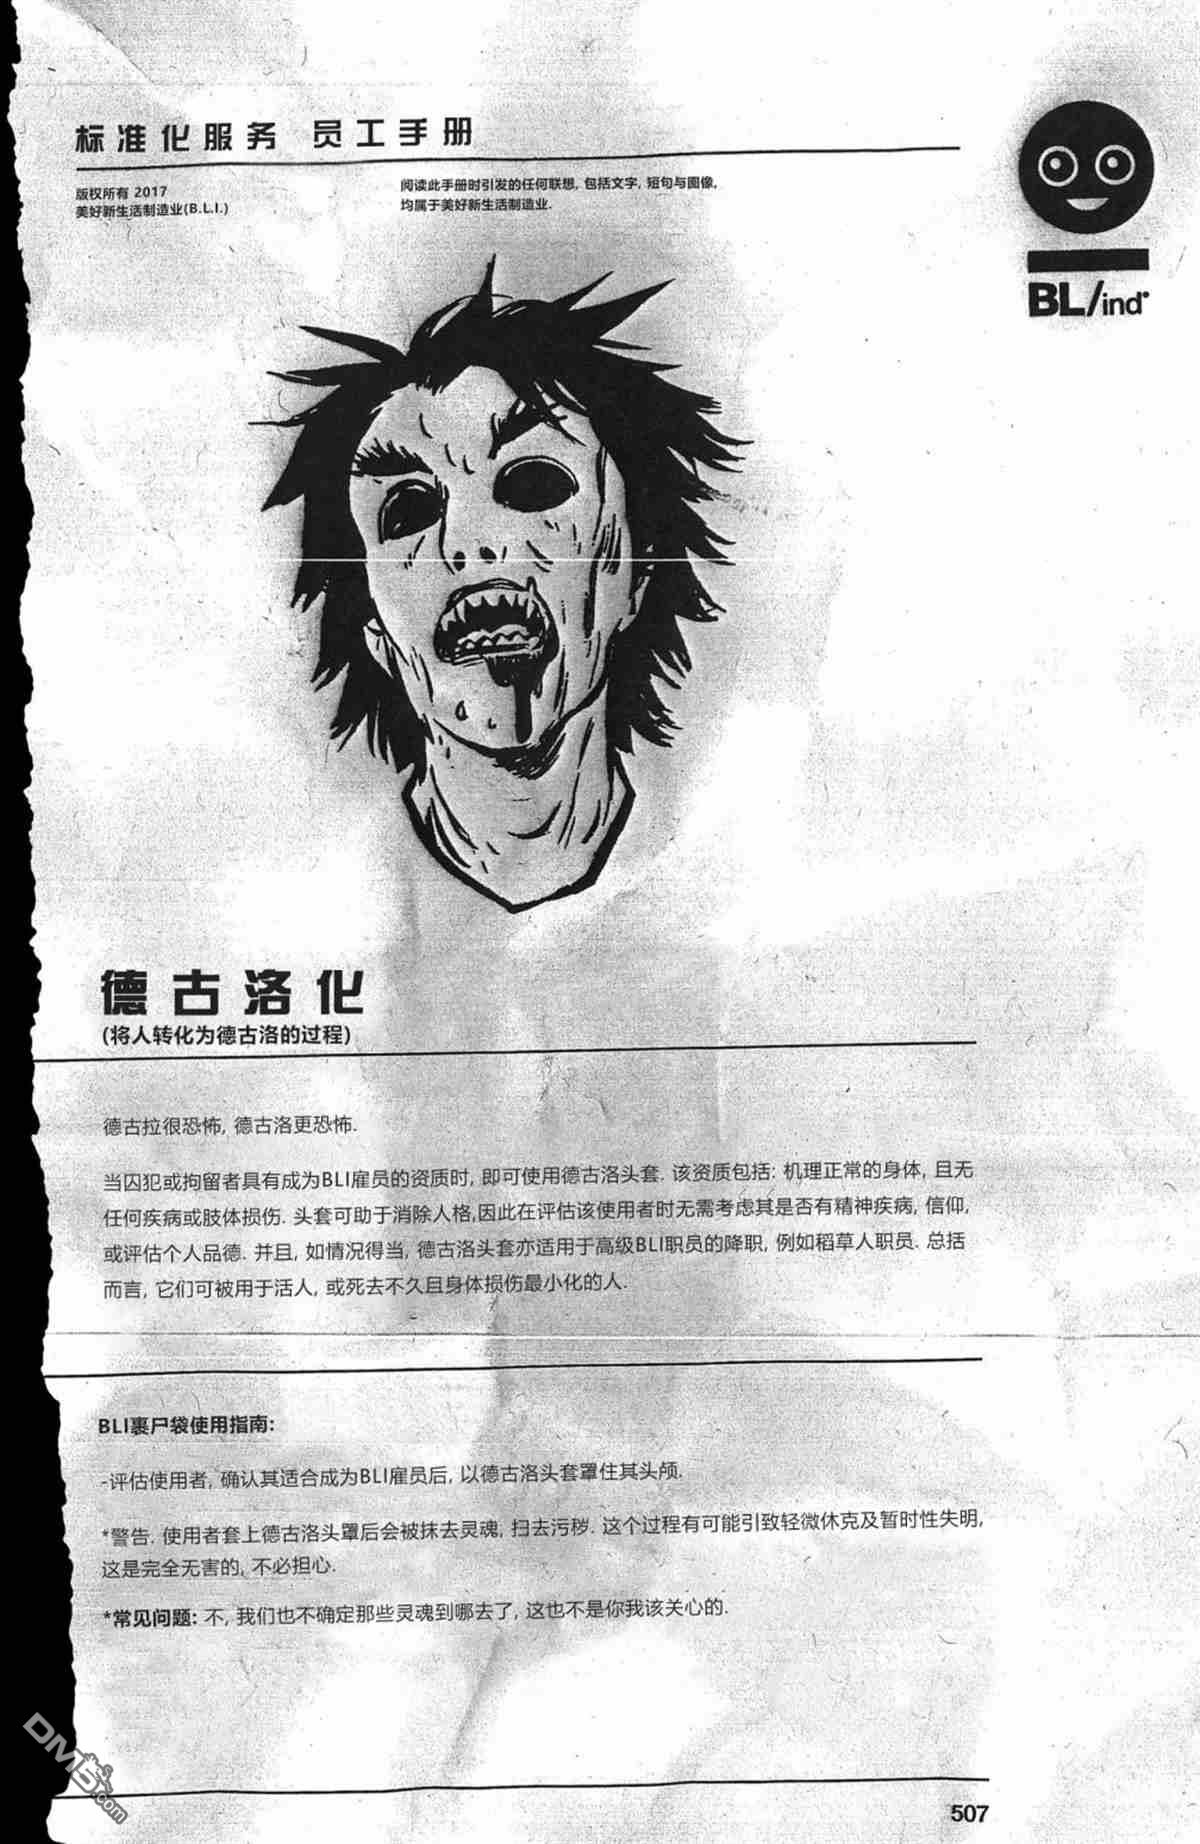 标准化服务 员工手册
版权所有 2017
美好新生活制造业(B.L.I.)
阅读此手册时引发的任何联想, 包括文字, 短句与图像,
均属于美好新生活制造业.
BL/ind
德古洛化
(将人转化为德古洛的过程)
德古拉很恐怖, 德古洛更恐怖.
当囚犯或拘留者具有成为BLI雇员的资质时, 即可使用德古洛头套. 该资质包括: 机理正常的身体, 且无
任何疾病或肢体损伤. 头套可助于消除人格,因此在评估该使用者时无需考虑其是否有精神疾病, 信仰,
或评估个人品德. 并且, 如情况得当, 德古洛头套亦适用于高级BLI职员的降职, 例如稻草人职员. 总括
而言, 它们可被用于活人, 或死去不久且身体损伤最小化的人.
BLI裹尸袋使用指南:
-评估使用者, 确认其适合成为BLI雇员后, 以德古洛头套罩住其头颅.
*警告. 使用者套上德古洛头罩后会被抹去灵魂, 扫去污秽. 这个过程有可能引致轻微休克及暂时性失明,
这是完全无害的, 不必担心.
*常见问题: 不, 我们也不确定那些灵魂到哪去了, 这也不是你我该关心的.
DM5.com
507